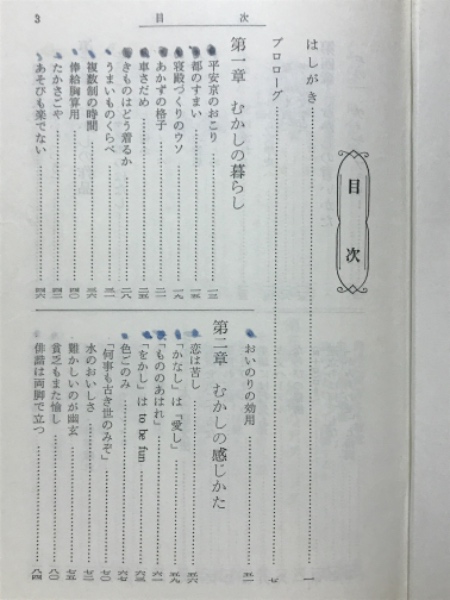 目次
3
目次
はしがき……一
プロローグ……七
第一章 むかしの暮らし
平安京のおこり……一三
都のすまい……一五
寝殿づくりのウソ……一九
あかずの格子……二一
車さだめ……二五
きものはどう着るか……二八
うまいものくらべ……三一
複数制の時間……三六
俸給胸算用……四〇
たかさごや……四三
あそびも楽でない……四六
おいのりの効用……五一
第二章 むかしの感じかた
恋は苦し……五六
「かなし」は「愛し」……五九
「もののあはれ」……六一
「をかし」は to be fun……六三
色ごのみ……六七
「何事も古き世のみぞ」……七〇
水のおいしさ……七二
難かしいのが幽玄……七五
貧乏もまた愉し……八〇
俳諧は両脚で立つ……八四